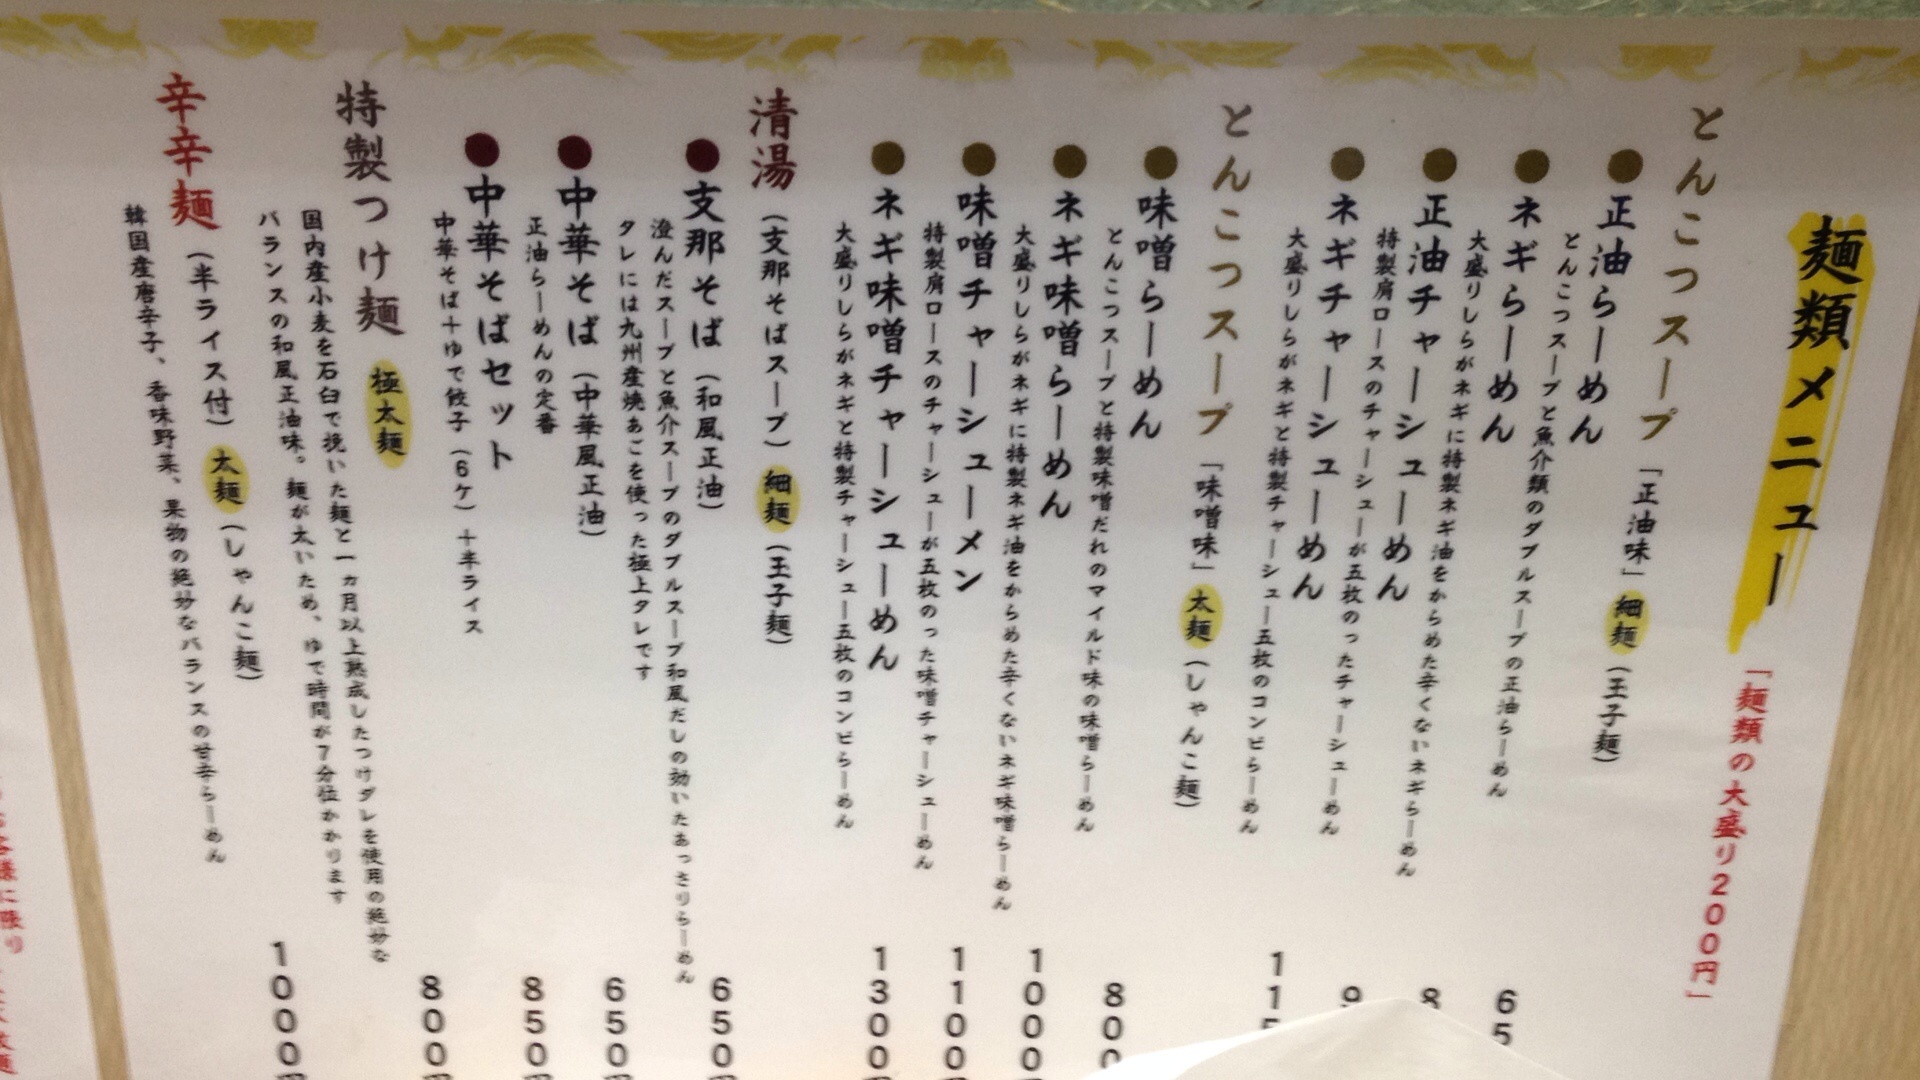 麺類メニュー
「麺類の大盛り200円」
とんこつスープ「正油味」細麺(玉子麺)
●正油らーめん
とんこつスープと魚介類のダブルスープの正油らーめん
65
●ネギらーめん
大盛りしらがネギに特製ネギ油をからめた辛くないネギらーめん
8
●正油チャーシューめん
特製肩ロースのチャーシューが五枚のったチャーシューめん
9
●ネギチャーシューめん
大盛りしらがネギと特製チャーシュー五枚のコンビらーめん
115
とんこつスープ「味噌味」太麺(しゃんこ麺)
●味噌らーめん
とんこつスープと特製味噌だれのマイルド味の味噌らーめん
800
●ネギ味噌らーめん
大盛りしらがネギに特製ネギ油をからめた辛くないネギ味噌らーめん
1000円
●味噌チャーシューメン
特製肩ロースのチャーシューが五枚のった味噌チャーシューめん
1100円
●ネギ味噌チャーシューめん
大盛りしらがネギと特製チャーシュー五枚のコンビらーめん
1300円
清湯(支那そばスープ)細麺(玉子麺)
●支那そば(和風正油)
澄んだスープと魚介スープのダブルスープ和風だしの効いたあっさりらーめん
タレには九州産焼あごを使った極上タレです
650円
●中華そば(中華風正油)
正油らーめんの定番
650円
●中華そばセット
中華そば+ゆで餃子(6ケ)+半ライス
850円
特製つけ麺 極太麺
国内産小麦を石臼で挽いた麺と一カ月以上熟成したつけダレを使用の絶妙な
バランスの和風正油味。麺が太いため、ゆで時間が7分位かかります
800円
辛辛麺(半ライス付)太麺(しゃんこ麺)
韓国産唐辛子、香味野菜、果物の絶妙なバランスの甘辛らーめん
1000円